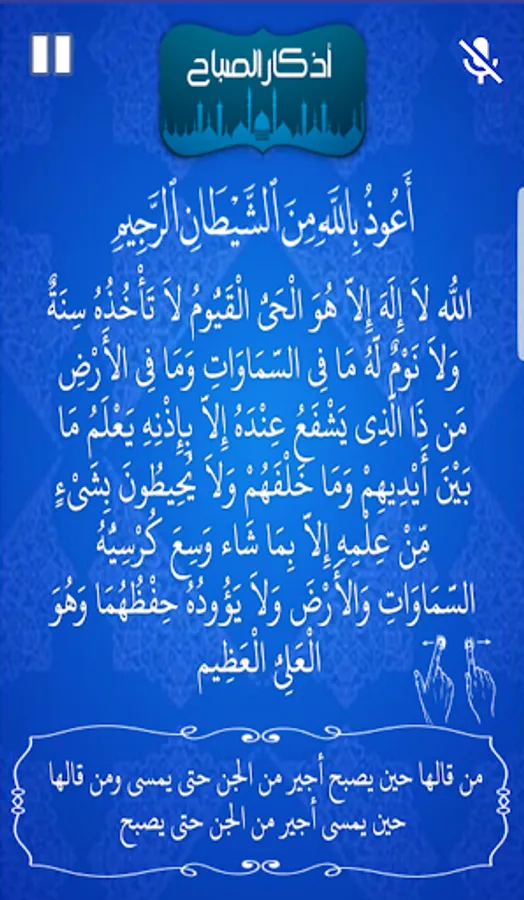 أذكار الصباح
أَعُوذُ بِاللَّهِ مِنَ ٱلشَّيْطَانِ ٱلرَّجِيمِ
اللّه لاَ إِلَهَ إِلاَّ هُوَ الْحَيُّ الْقَيُّومُ لاَ تَأْخُذُهُ سِنَةٌ
وَلاَ نَوْمٌ لَّهُ مَا فِي السَّمَاوَاتِ وَمَا فِي الأَرْضِ
مَن ذَا الَّذِي يَشْفَعُ عِنْدَهُ إِلاَّ بِإِذْنِهِ يَعْلَمُ مَا
بَيْنَ أَيْدِيهِمْ وَمَا خَلْفَهُمْ وَلاَ يُحِيطُونَ بِشَيْءٍ
مِّنْ عِلْمِهِ إِلاَّ بِمَا شَاء وَسِعَ كُرْسِيُّهُ
السَّمَاوَاتِ وَالأَرْضَ وَلاَ يَؤُودُهُ حِفْظُهُمَا وَهُوَ
الْعَلِيُّ الْعَظِيم
من قالها حين يصبح أجير من الجن حتى يمسى ومن قالها
حين يمسى أجير من الجن حتى يصبح